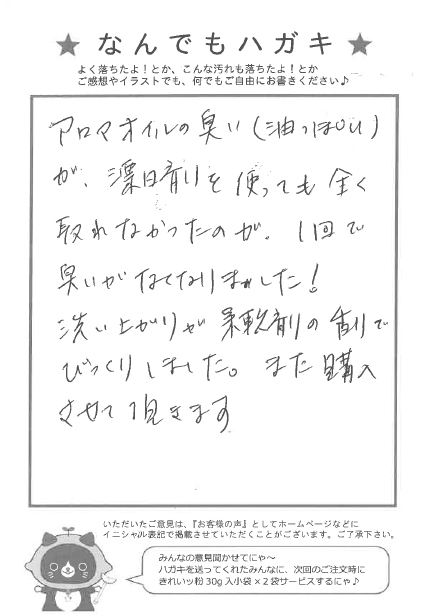 ★ なんでもハガキ ★
よく落ちたよ!とか、こんな汚れも落ちたよ!とか
ご感想やイラストでも、何でもご自由にお書きください♪
アロマオイルの臭い(油っぽい)
が、漂白剤を使っても全く
取れなかったのが、1回で
臭いがなくなりました!
洗い上がりが柔軟剤の香りで
びっくりしました。また購入
させて頂きます
いただいたご意見は、『お客様の声』としてホームページなどに
イニシャル表記で掲載させていただくことがございます。ご了承下さい。
みんなの意見聞かせてにゃ〜
ハガキを送ってくれたみんなに、次回のご注文時に
きれいッ粉30g入小袋×2袋サービスするにゃ♪